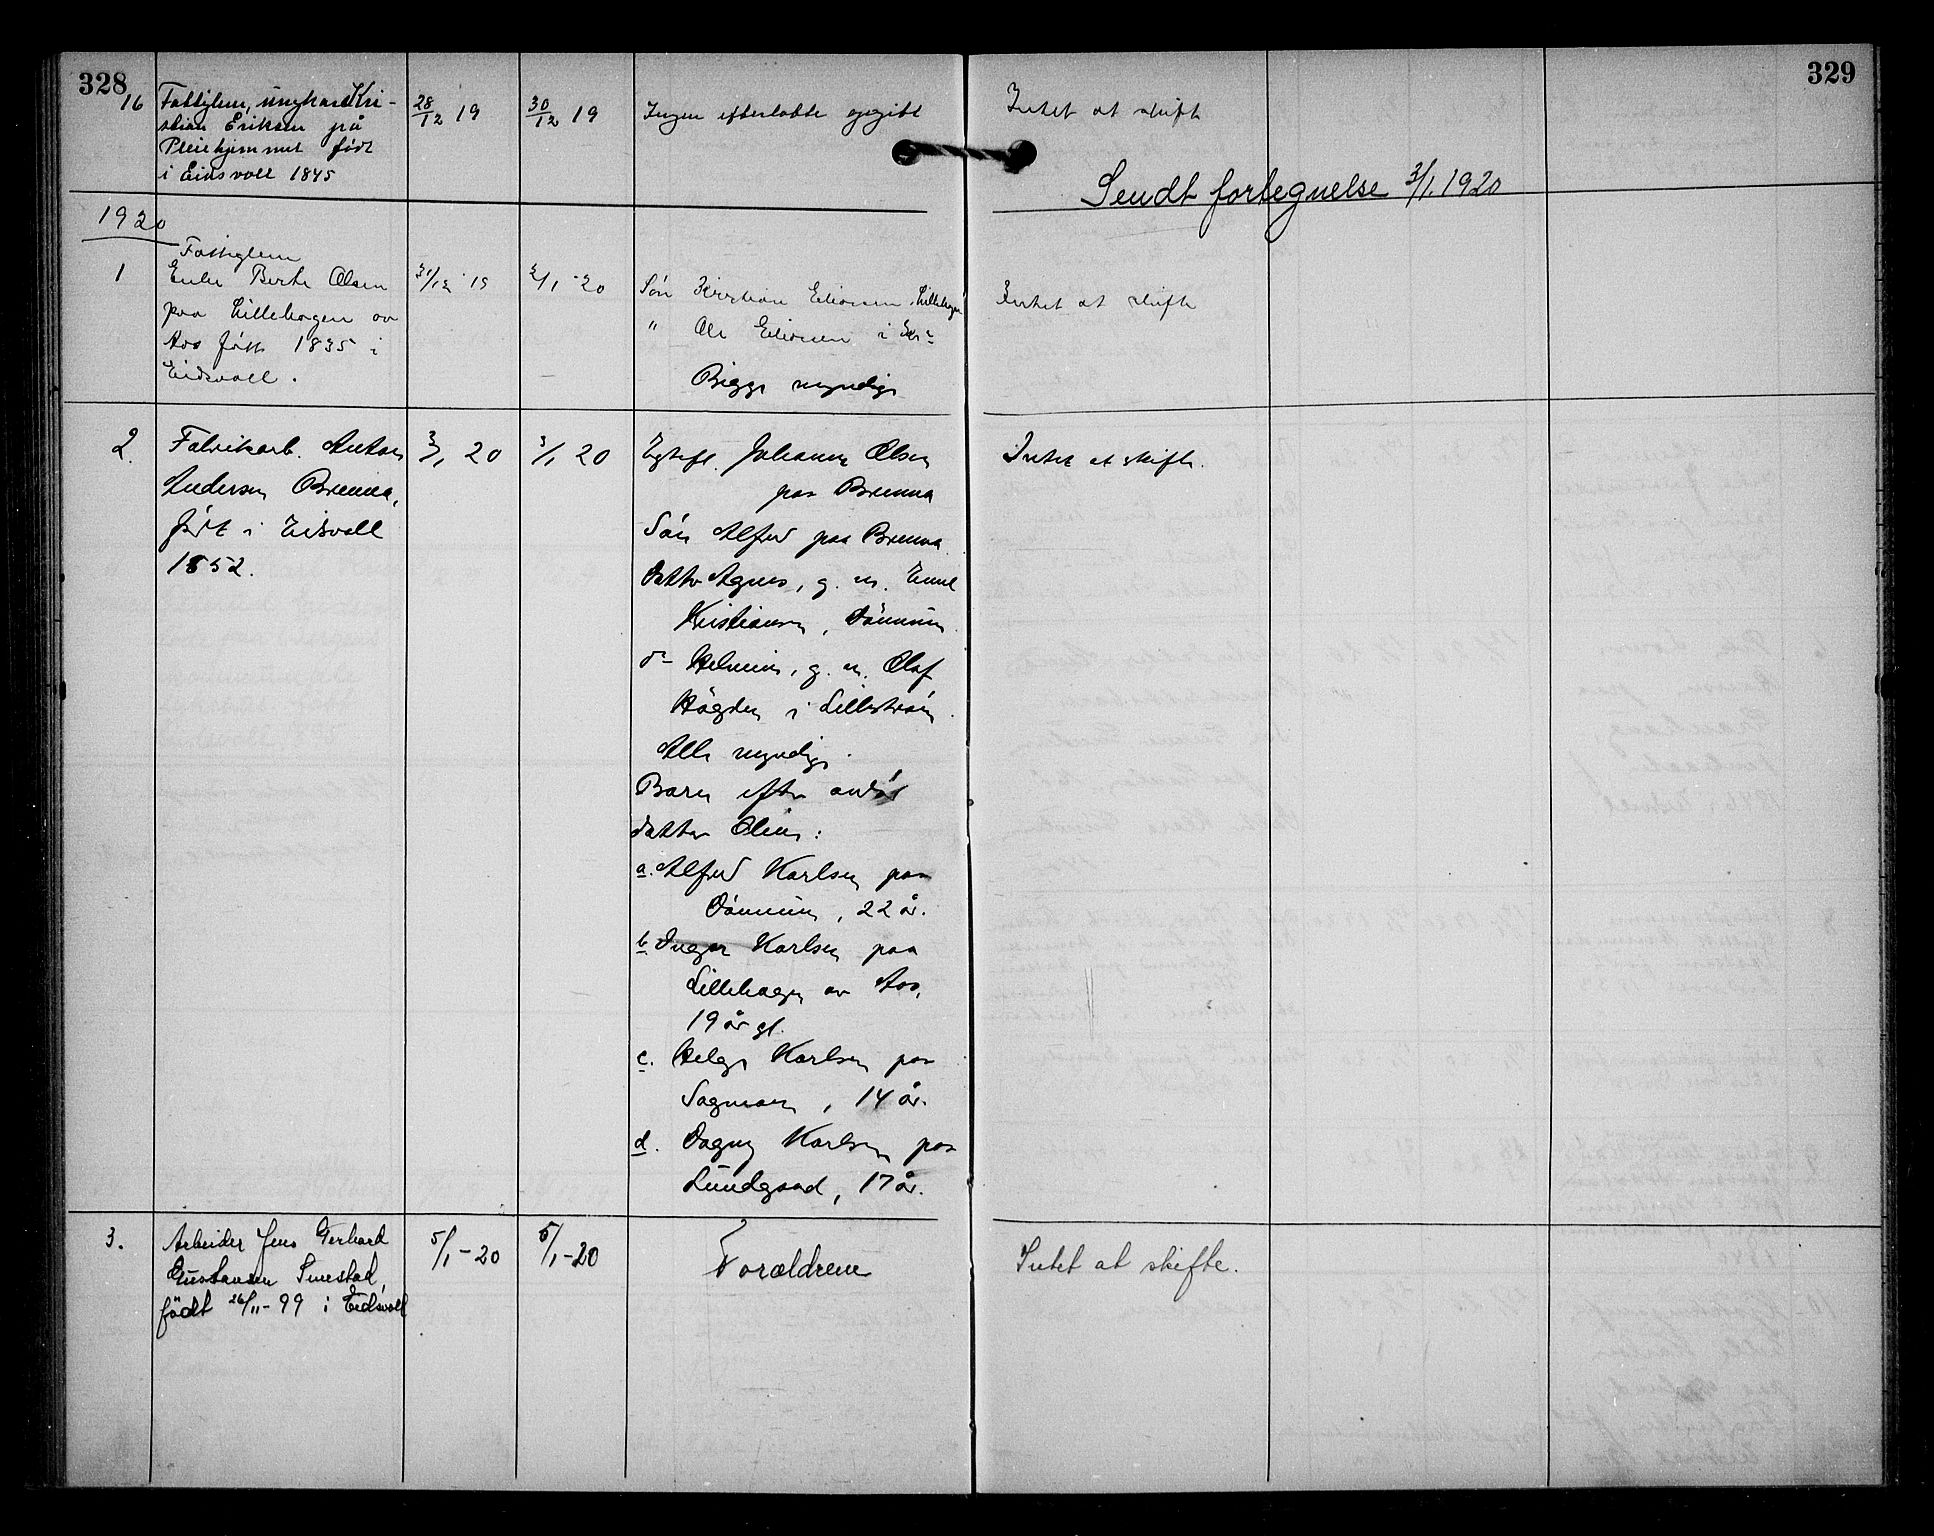 328
16 Fattiglem, ungkarl Kri-
stian Eriksen på
Pleiehjemmet født
i Eidsvoll 1845
28/12 19
30/12 19
Ingen efterlatte opgitt
Intet at skifte
329
Sendt fortegnelse 3/1. 1920
1920
1
Fattiglem
Enke Berte Olsen
paa Lillehagen av
Aas født 1835 i
Eidsvoll.
31/12 19
2/1 - 20
Søn Kristian Eliassen, Lillehagen
" Ole Eliassen i
Begge myndige
Intet at skifte
2.
Fabrikarb. Anton
Andersen Brenna,
født i Eidsvoll
1852.
3/1 20
3/1 20
Egtef. Johanne Olsen
paa Brenna
Søn Alfred paa Brenna
Datter Agnes, g. m. Emil
Kristiansen, Dønnum.
d° Helmine, g. m. Olaf
Høgden i Lillestrøm.
Alle myndige.
Barn efter avdød
datter Oline:
a. Alfred Karlsen paa
Dønnum, 22 år.
b. Inga Karlsen paa
Lillehagen av Aas,
19 år gl.
c. Helge Karlsen paa
Sagmoen, 14 år.
d. Dagny Karlsen paa
Lundgaard, 17 år.
Intet at skifte.
3.
Arbeider Jens Gerhard
Gustavsen Smestad,
født 26/11 - 99 i Eidsvoll
5/1 - 20
5/1 - 20
Forældrene
Intet at skifte.